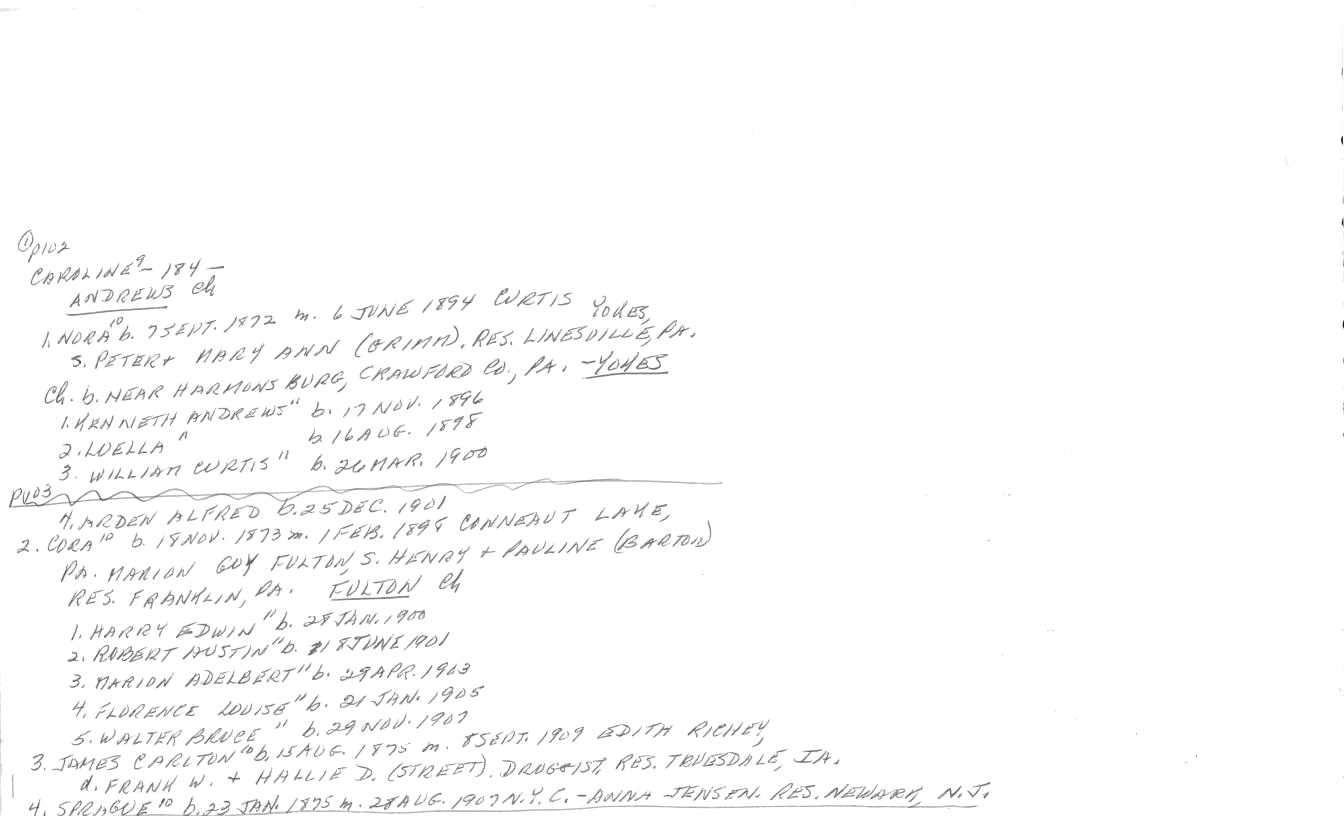 ① p102
CAROLINE⁹ - 184 -
ANDREWS Ch
1. NORA¹⁰ b. 7 SEPT. 1872 m. 6 JUNE 1894 CURTIS YOKES,
S. PETER + MARY ANN (GRIMM). RES. LINESVILLE, PA.
Ch. b. NEAR HARMONSBURG, CRAWFORD CO., PA. - YOKES
1. KENNETH ANDREWS" b. 17 NOV. 1896
2. LUELLA " b 16 AUG. 1898
3. WILLIAM CURTIS" b. 26 MAR. 1900
P403
4. ARDEN ALFRED b. 25 DEC. 1901
2. CORA¹⁰ b. 18 NOV. 1873 m. 1 FEB. 1898 CONNEAUT LAKE,
PA. MARION GUY FULTON, S. HENRY + PAULINE (BARTON)
RES. FRANKLIN, PA. FULTON Ch
1. HARRY EDWIN" b. 28 JAN. 1900
2. ROBERT AUSTIN" b. 18 JUNE 1901
3. MARION ADELBERT" b. 29 APR. 1903
4. FLORENCE LOUISE" b. 21 JAN. 1905
5. WALTER BRUCE " b. 29 NOV. 1907
3. JAMES CARLTON¹⁰ b. 15 AUG. 1875 m. 8 SEPT. 1909 EDITH RICHEY,
d. FRANK W. + HALLIE D. (STREET). DRUGGIST, RES. TRUESDALE, IA.
4. SPRAGUE¹⁰ b. 23 JAN. 1875 m. 28 AUG. 1907 N.Y.C. - ANNA JENSEN. RES. NEWARK, N.J.